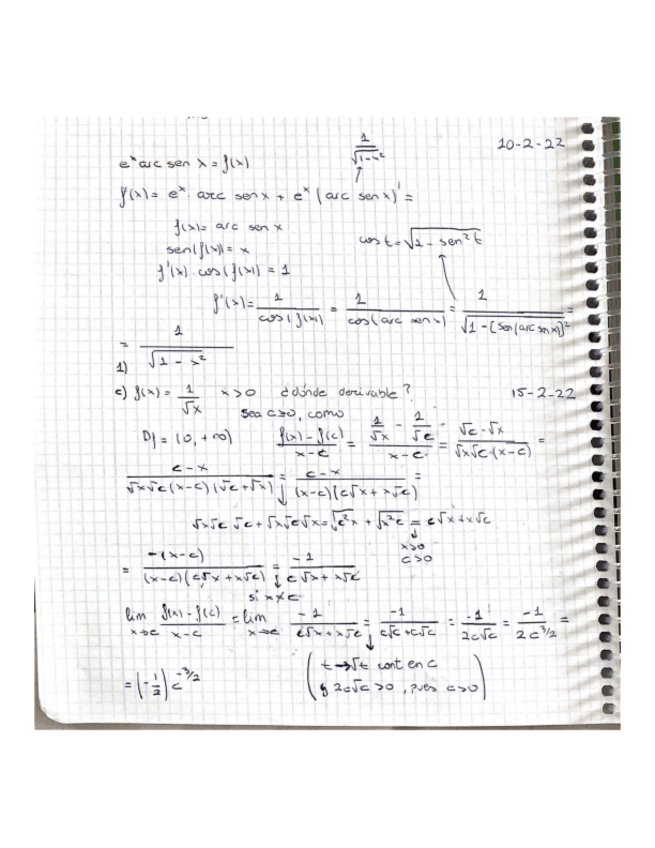 10-2-22
1/√(1-x²)
eˣ arc sen x = f(x)
f'(x) = eˣ · arc sen x + eˣ (arc sen x)' =
f(x) = arc sen x
sen(f(x)) = x
cos t = √(1 - sen² t)
f'(x) · cos(f(x)) = 1
f'(x) = 1/cos(f(x)) = 1/cos(arc sen x) = 1/√(1 - [sen(arc sen x)]²) =
= 1/√(1 - x²)
1)
c) f(x) = 1/√x x>0 ¿dónde derivable? 15-2-22
Sea c>0, como
Df = (0, +∞) (f(x) - f(c))/(x - c) = (1/√x - 1/√c)/(x - c) = (√c - √x)/(√x√c (x - c)) =
(c - x)/(√x√c (x-c) (√c + √x)) = (c - x)/((x-c)(c√x + x√c)) =
√x√c √c + √x√c√x = √(c²x) + √(x²c) = c√x + x√c
x>0
c>0
= -(x-c)/((x-c)(c√x + x√c)) = -1/(c√x + x√c)
si x≠c
lim x→c (f(x) - f(c))/(x - c) = lim x→c -1/(c√x + x√c) = -1/(c√c + c√c) = -1/(2c√c) = -1/(2c^3/2) =
= (-1/2) c^-3/2
(t → √t cont en c
y 2c√c > 0, pues c>0)